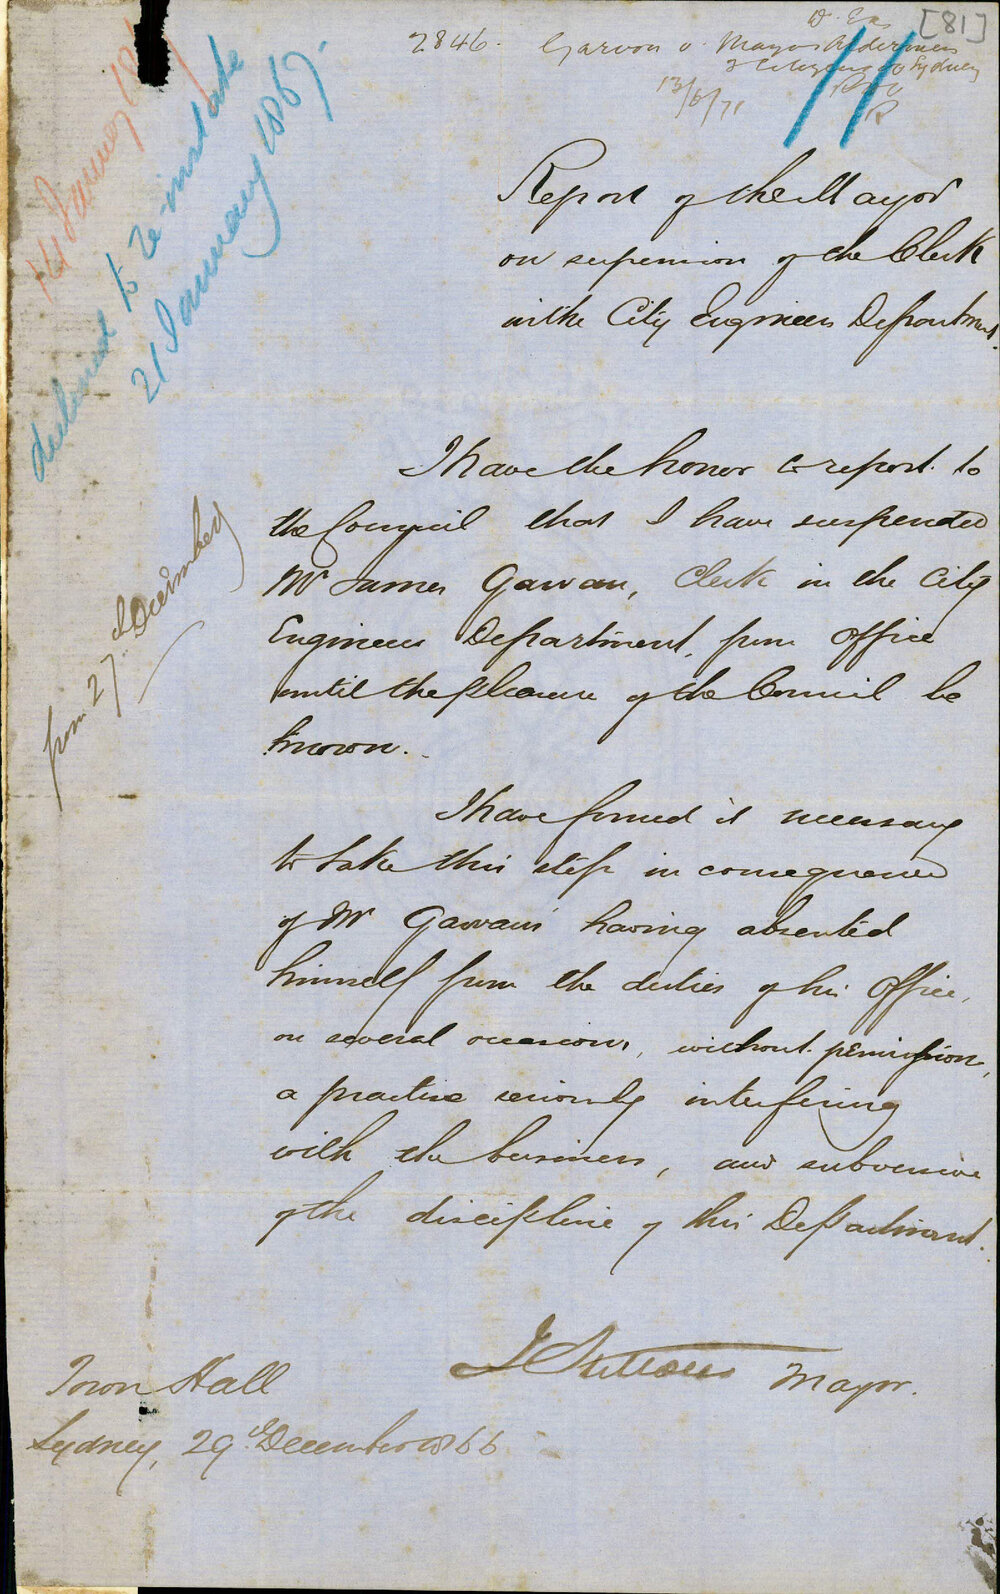 [81]
2846.
Garvan v. Mayor Aldermen
& Citizens of Sydney
13/6/71
14 January 186
declined to re-instate
21 January 1867.
Report of the Mayor
on suspension of the Clerk
in the City Engineers Department.
I have the honor to report to
the Council that I have suspended
Mr James Garvan, Clerk in the City
Engineers Department, from Office
until the pleasure of the Council be
known.
from 27 December
I have found it necessary
to take this step in consequence
of Mr Garvan's having absented
himself from the duties of his Office,
on several occasions, without permission,
a practise seriously interfering
with the business, and subversive
of the discipline of this Department.
J Sutton Mayor.
Town Hall
Sydney, 29th December 1866